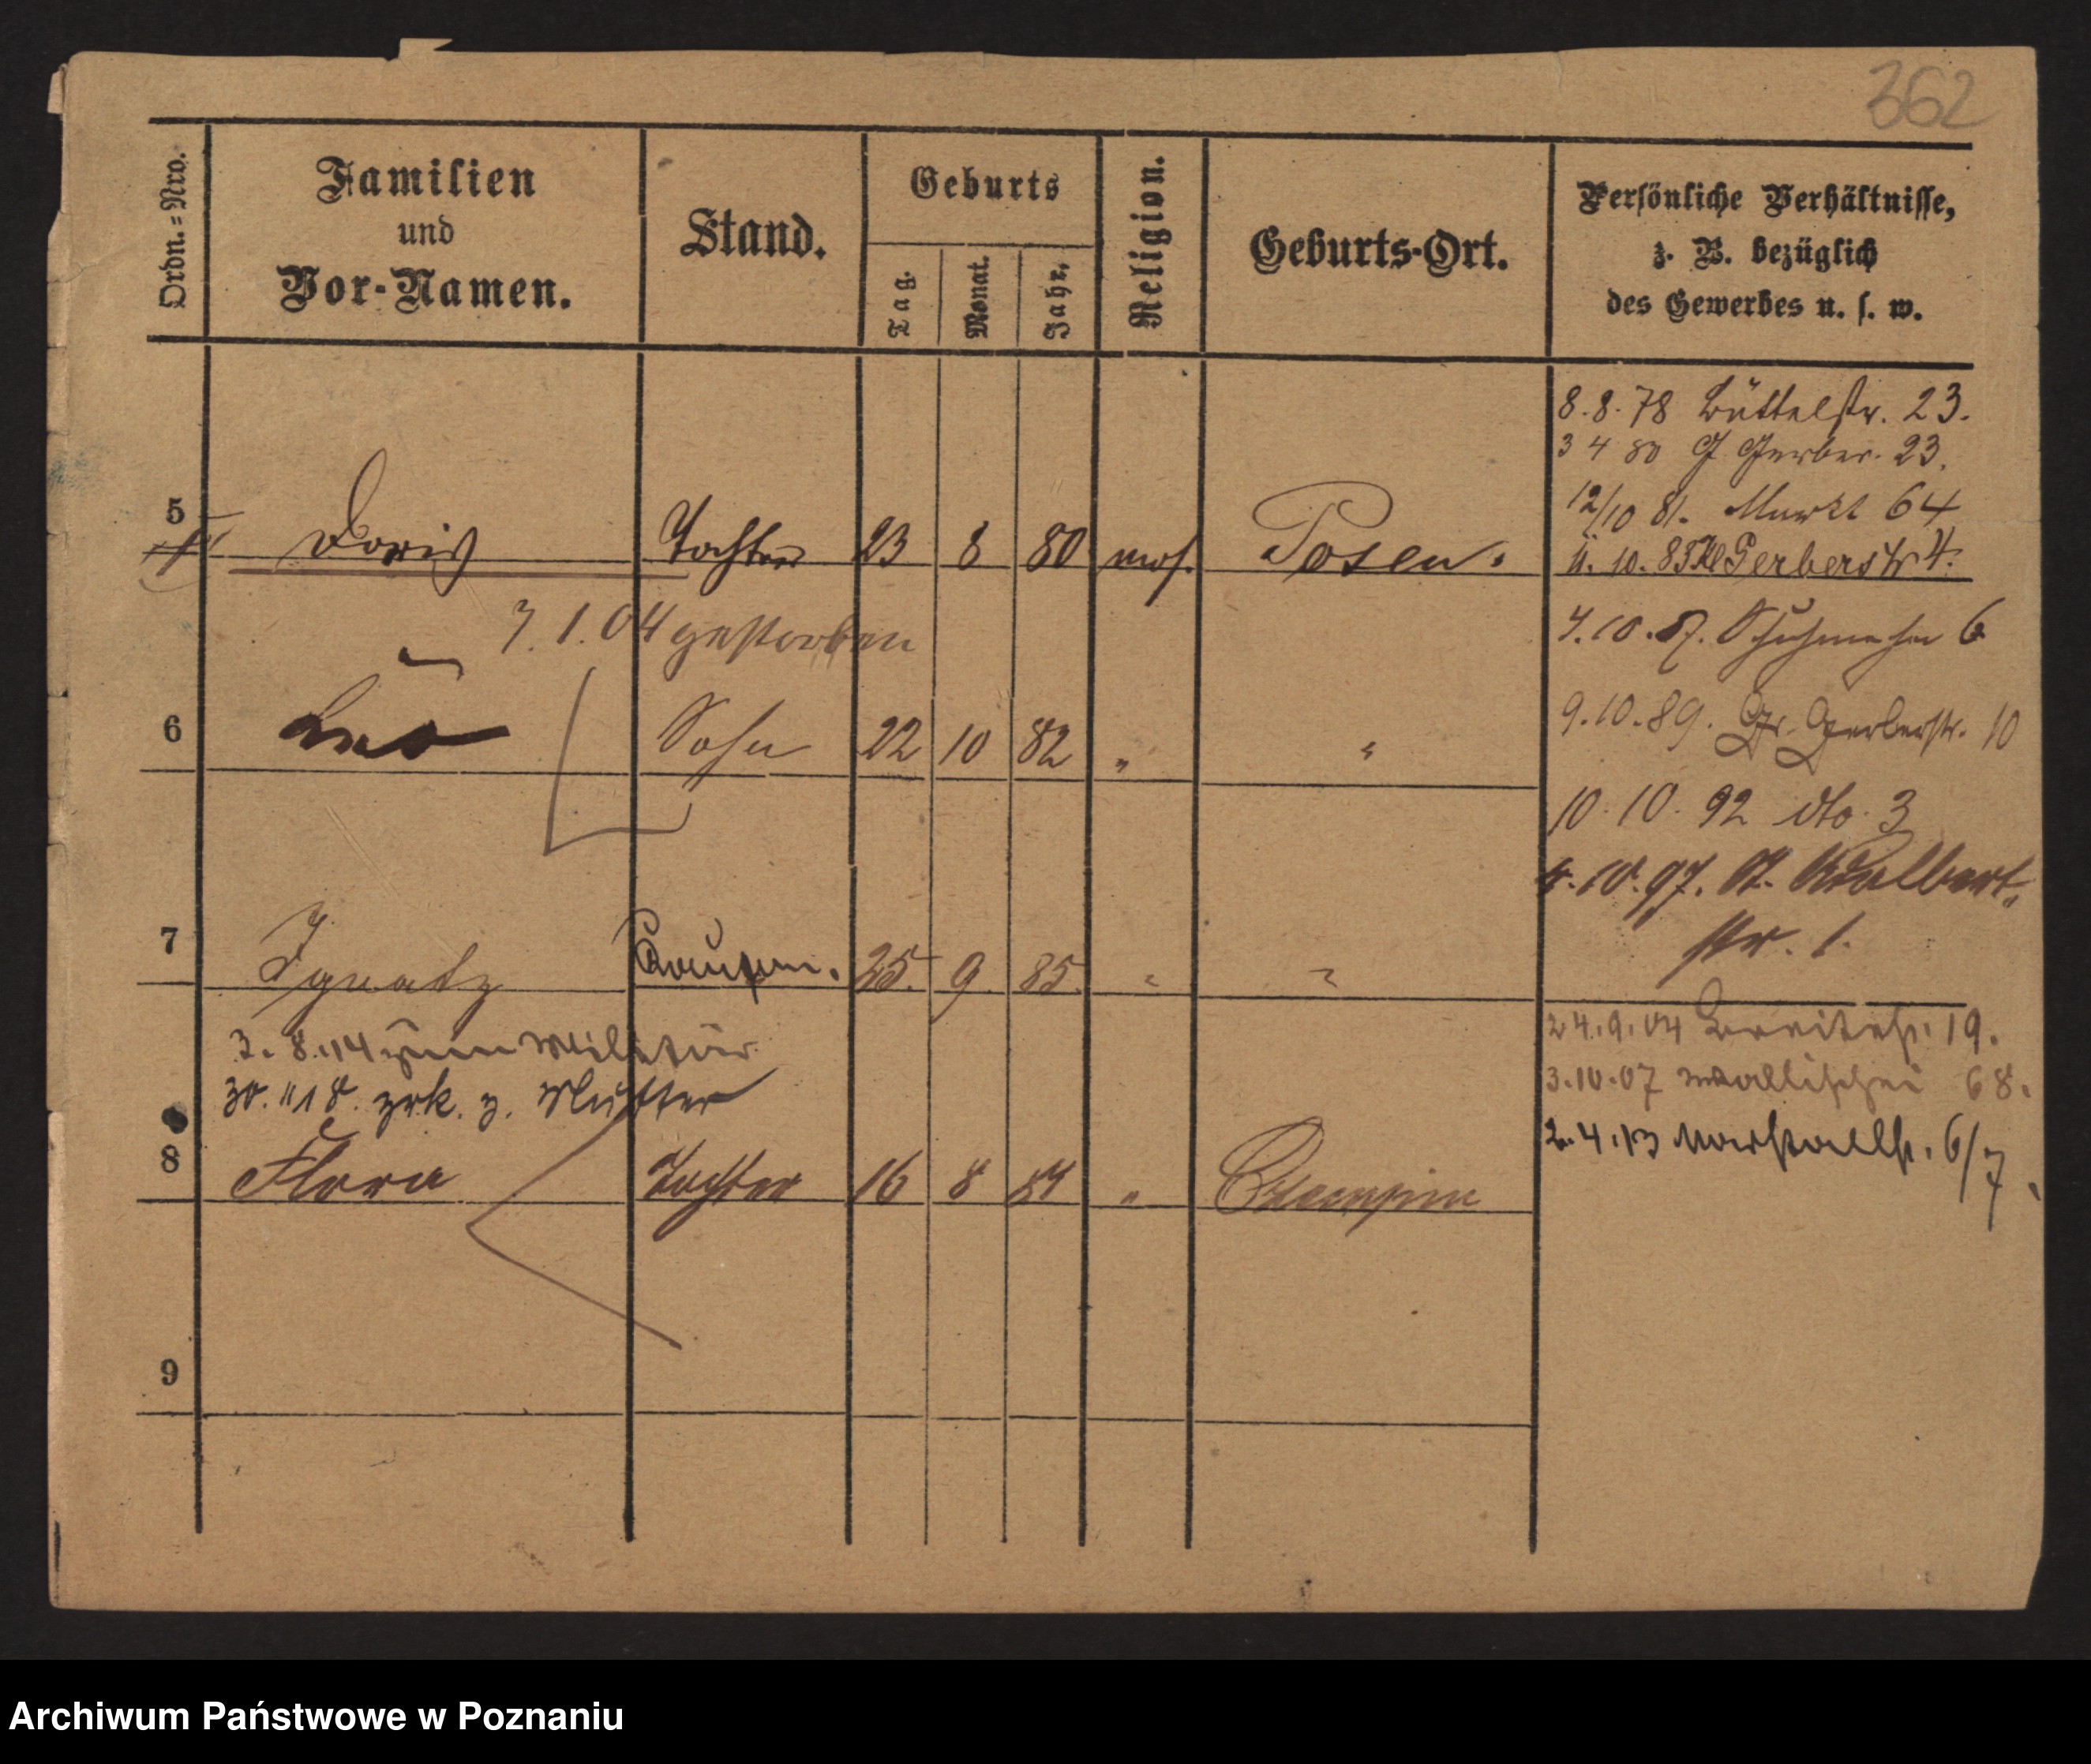 362
Ordn.=Nro.
Familien
und
Vor-Namen.
Stand.
Geburts
Tag.
Monat.
Jahr.
Religion.
Geburts-Ort.
Persönliche Verhältnisse,
z. B. bezüglich
des Gewerbes u. s. w.
8.8.78 Büttelstr. 23.
3 4 80 G Gerber. 23.
12/10 81. Markt 64
5 Doris Tochter 23 8 80 mos. Posen.
11. 10. 85 Kl Gerberstr 4.
7.1.04 gestorben
4.10.87. Schuhmacher 6
6 Sohn 22 10 82 " "
9.10.89. Gr. Gerberstr. 10
10.10.92 dto. 3
4.10.97. St. Adalbert.
str. 1.
7 Ignatz 25. 9. 85. " "
3.8.14 zum Militär
30. 11 18. zrk. z. Mutter
24.9.04 Breitestr. 19.
3.10.07 Wallischei 68.
2.4.13 Marstallstr. 6/7.
8 Flora Tochter 16 8 84 "
9
Archiwum Państwowe w Poznaniu